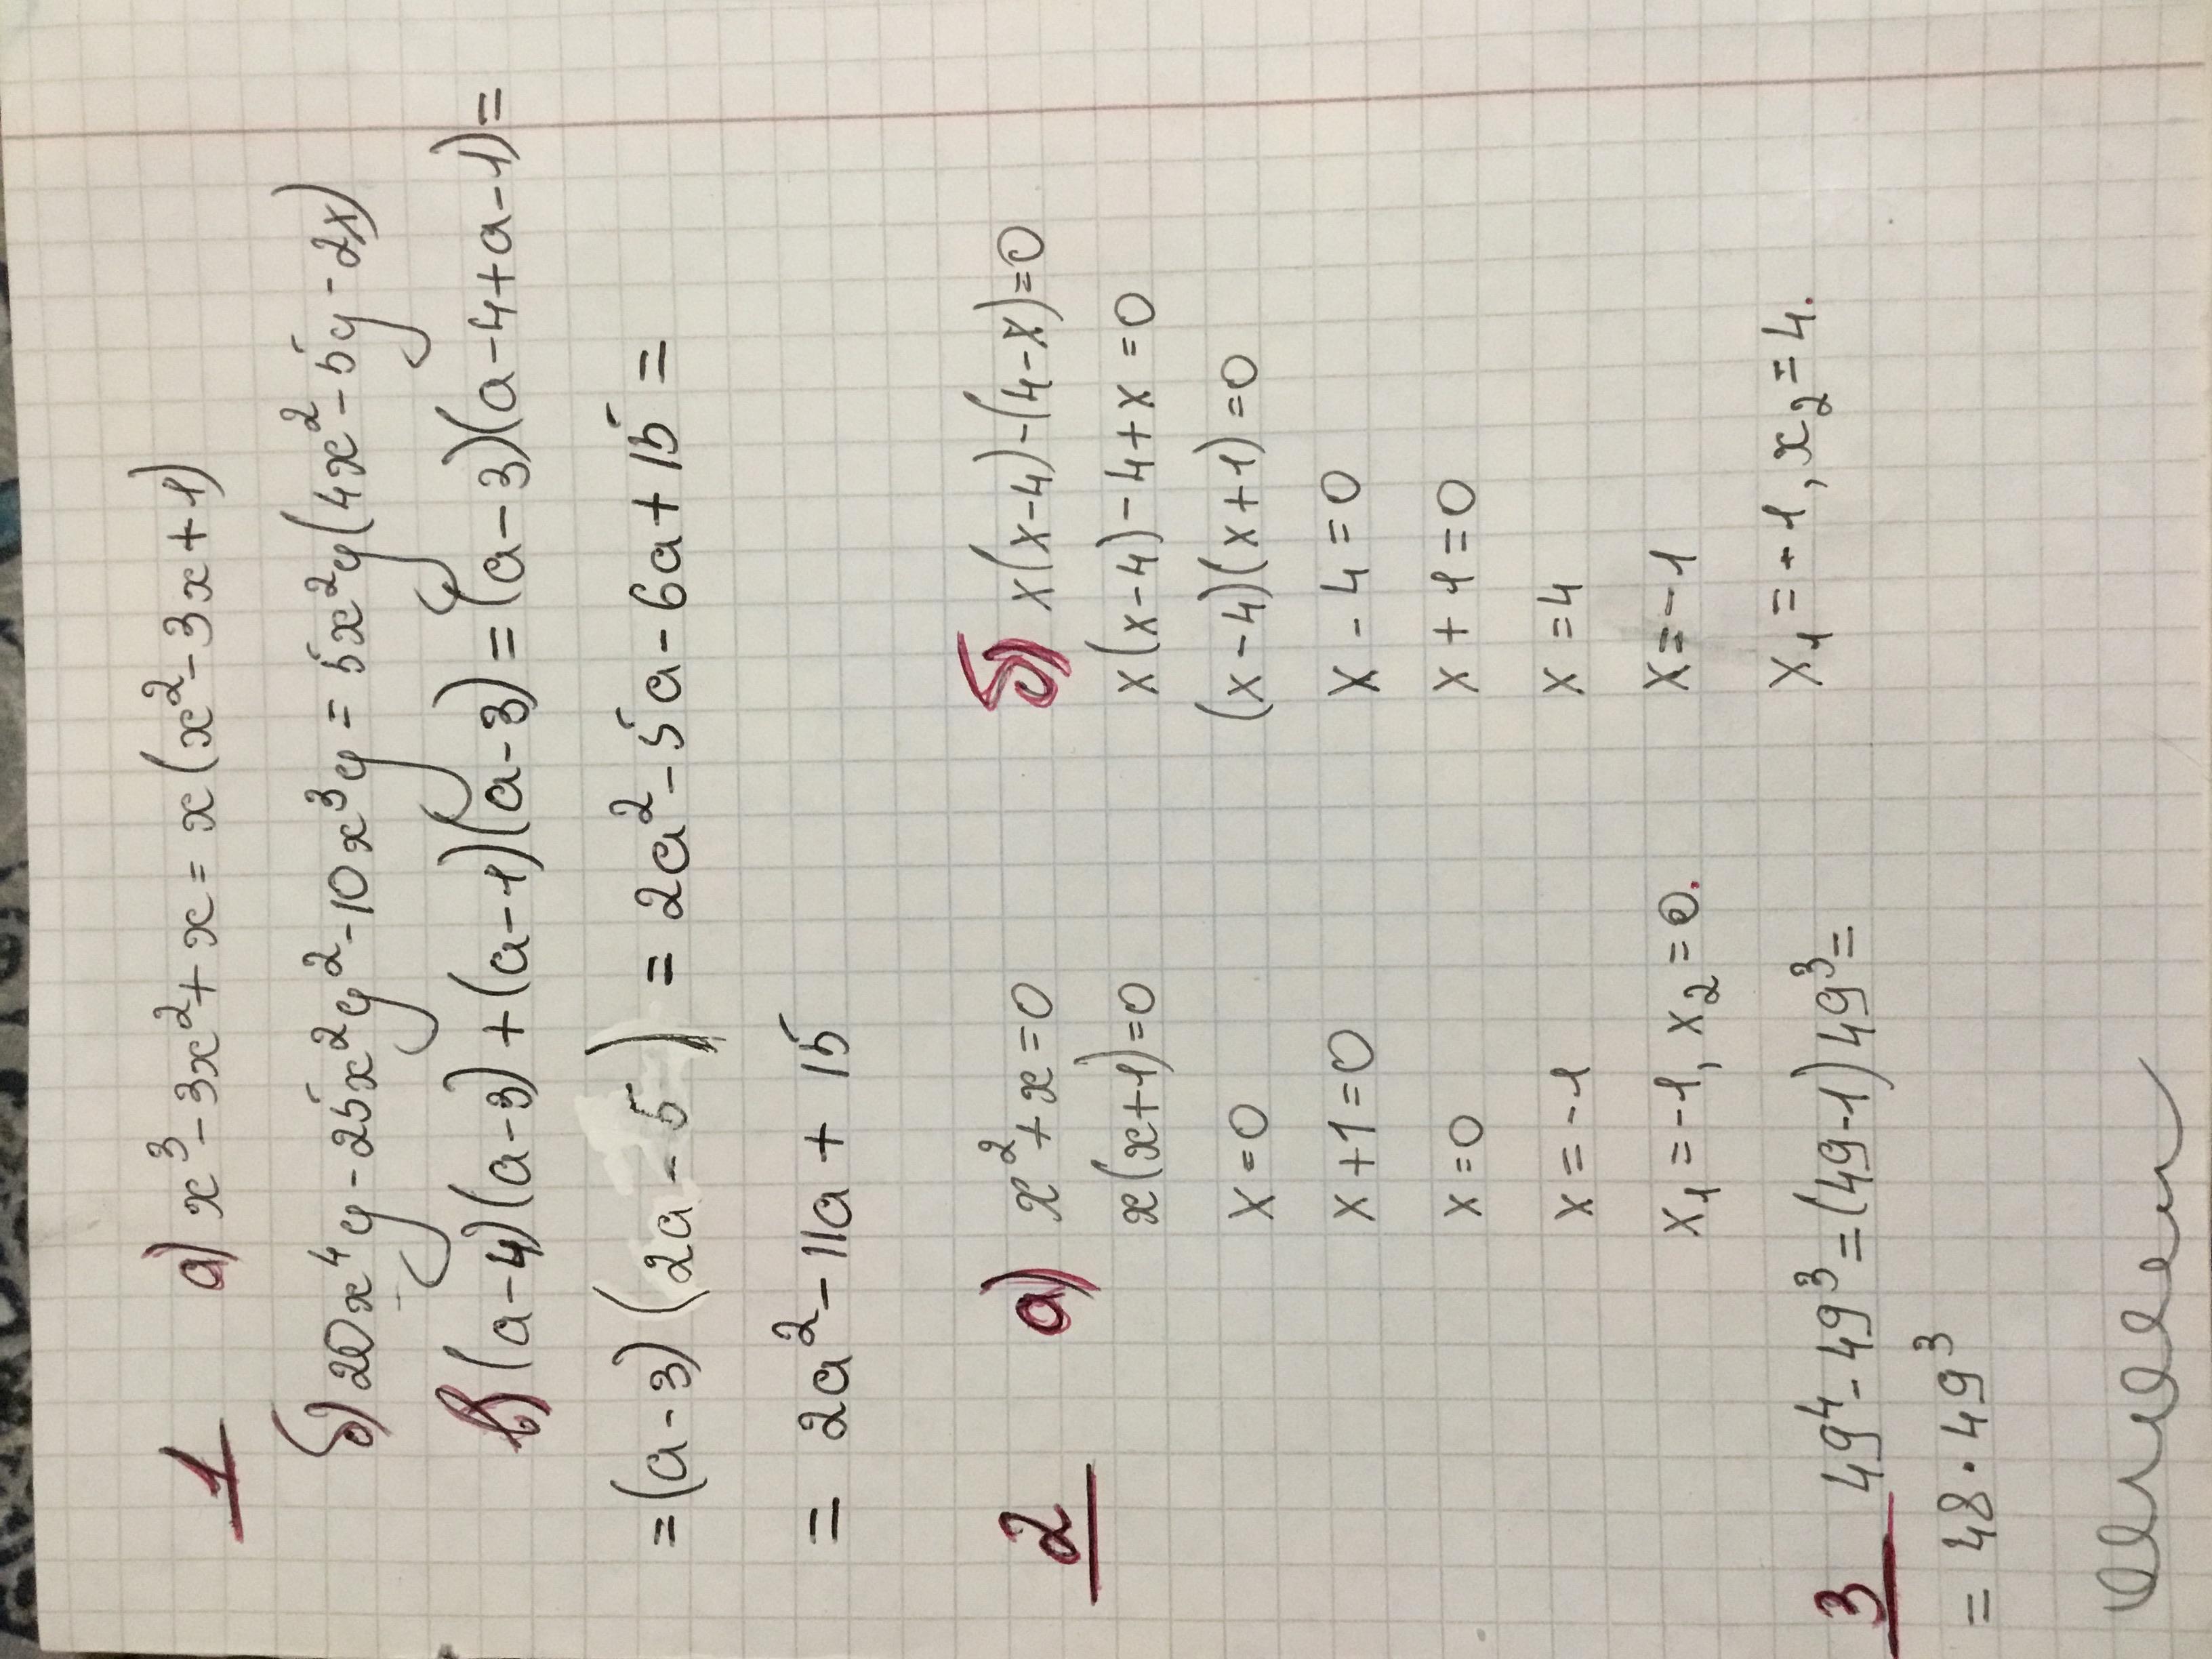 1 а) x³-3x²+x=x(x²-3x+1)
б) 20x⁴y-25x²y²-10x³y=5x²y(4x²-5y-2x)
в) (a-4)(a-3)+(a-1)(a-3)=(a-3)(a-4+a-1)=
=(a-3)(2a-5)=2a²-5a-6a+15=
=2a²-11a+15
2 а) x²+x=0
x(x+1)=0
x=0
x+1=0
x=0
x=-1
x₁=-1, x₂=0.
б) x(x-4)-(4-x)=0
x(x-4)-4+x=0
(x-4)(x+1)=0
x-4=0
x+1=0
x=4
x=-1
x₁=-1, x₂=4.
3 49⁴-49³=(49-1)49³=
=48·49³